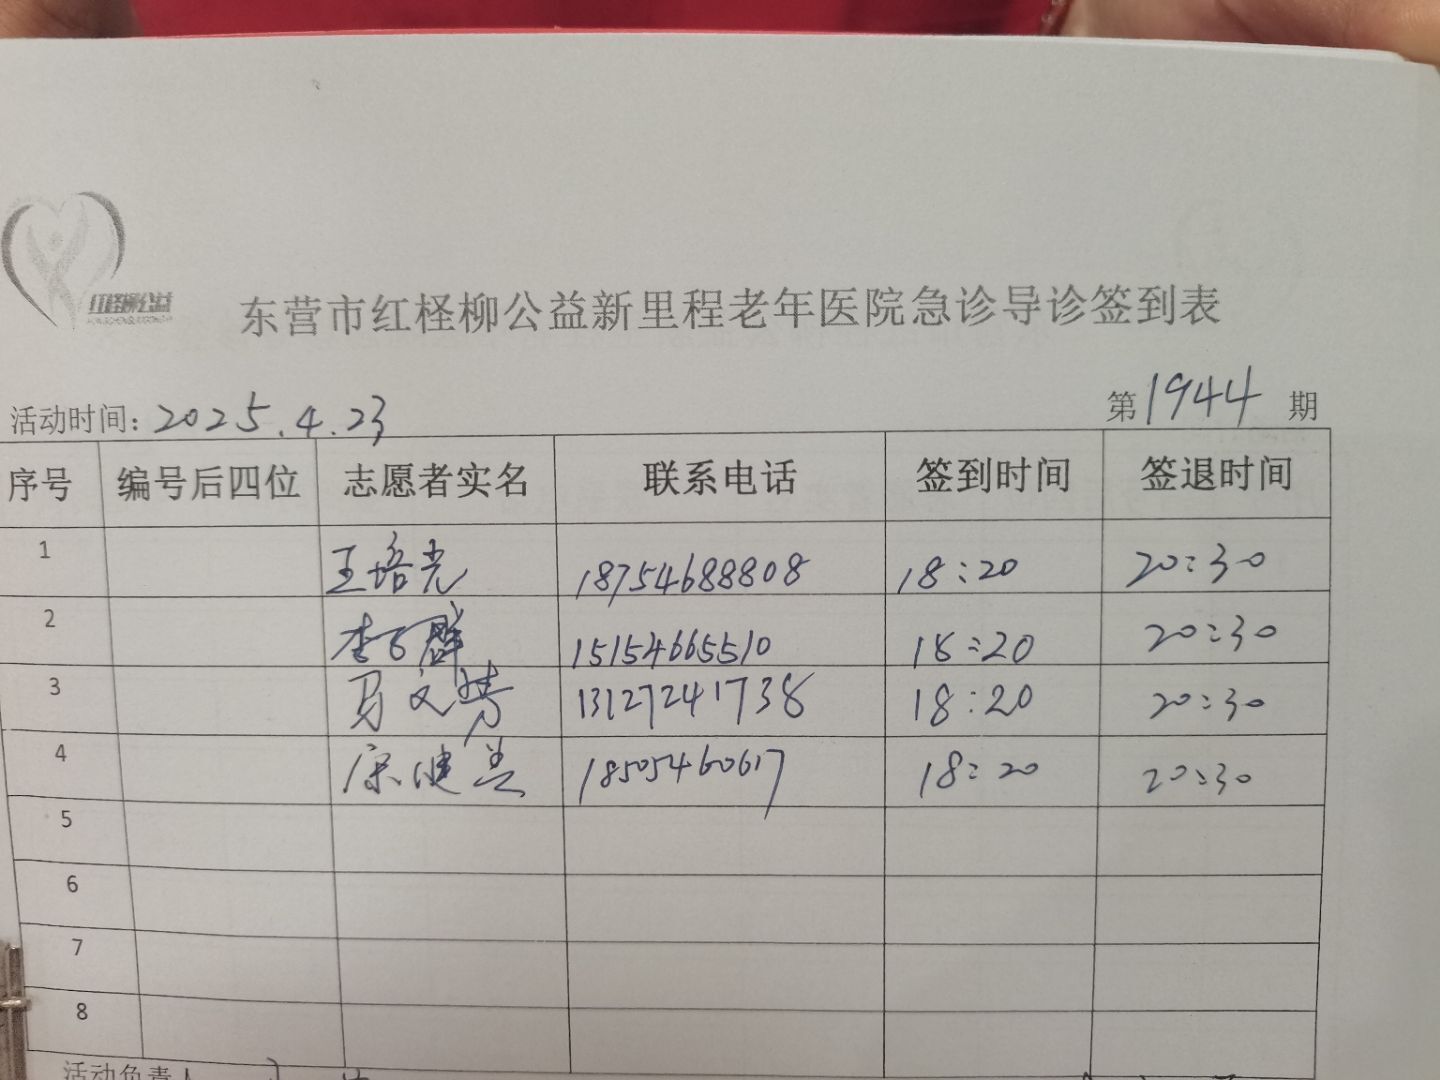 红柽柳公益
东营市红柽柳公益新里程老年医院急诊导诊签到表
活动时间：2025.4.23 第1944期
序号 编号后四位 志愿者实名 联系电话 签到时间 签退时间
1 王培光 18754688808 18:20 20:30
2 李 群 15154665510 18:20 20:30
3 马文 13127241738 18:20 20:30
4 健 18505460617 18:20 20:30
5
6
7
8
活动负责人